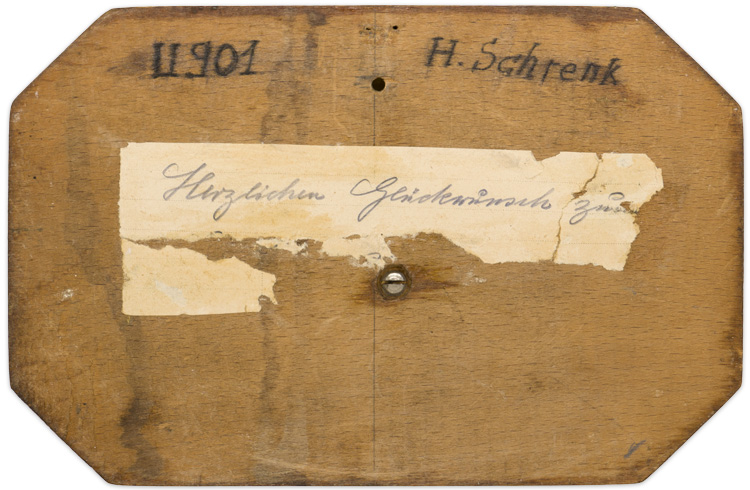 U901 H. Schrenk
Herzlichen Glückwunsch zum